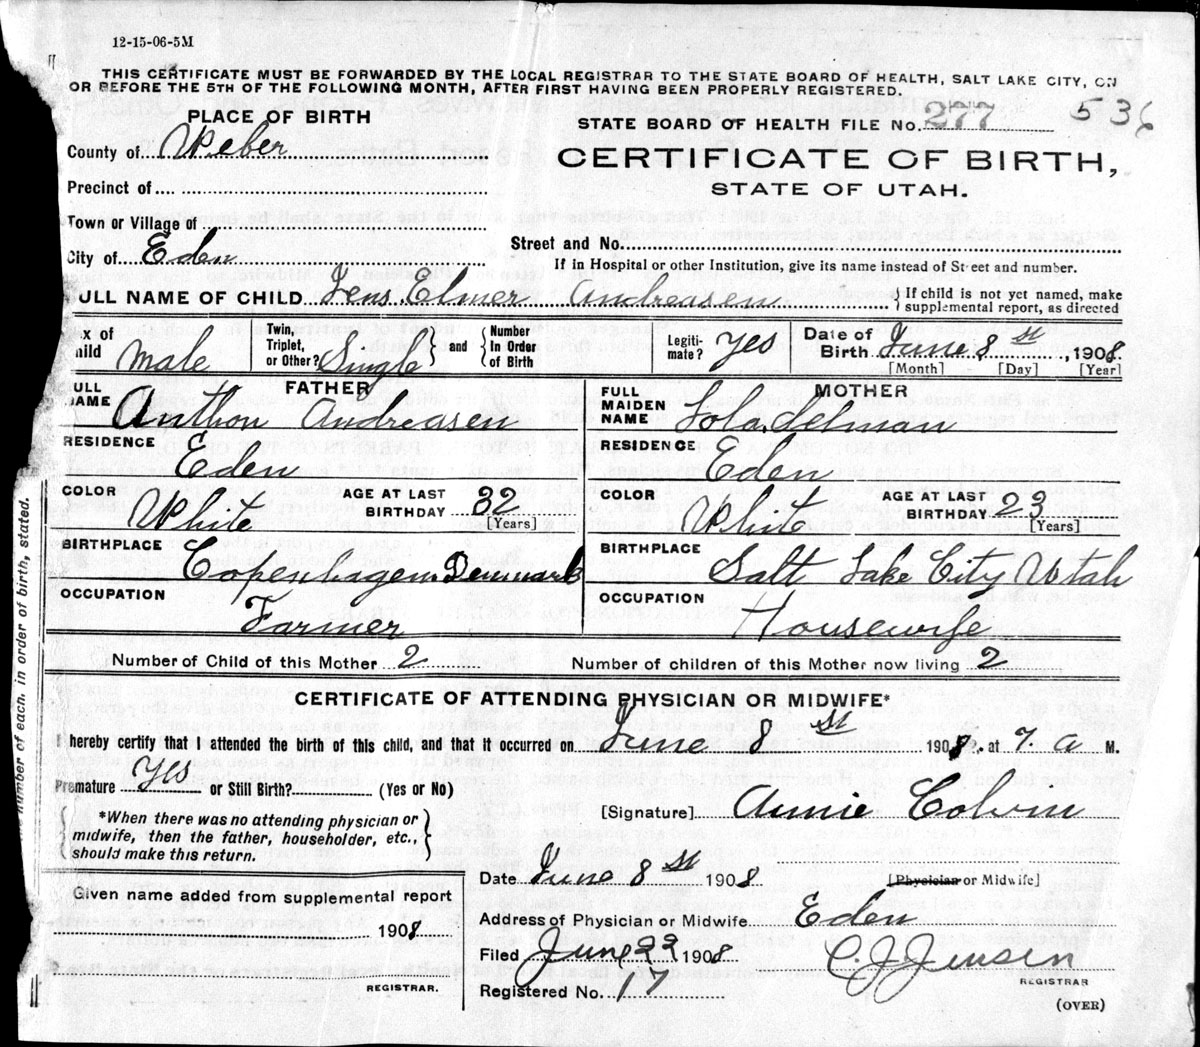 12-15-06-5M
THIS CERTIFICATE MUST BE FORWARDED BY THE LOCAL REGISTRAR TO THE STATE BOARD OF HEALTH, SALT LAKE CITY, ON
OR BEFORE THE 5TH OF THE FOLLOWING MONTH, AFTER FIRST HAVING BEEN PROPERLY REGISTERED.
PLACE OF BIRTH
STATE BOARD OF HEALTH FILE No. 277 536
County of Weber
CERTIFICATE OF BIRTH,
STATE OF UTAH.
Precinct of
Town or Village of
Street and No.
City of Eden
If in Hospital or other Institution, give its name instead of Street and number.
ULL NAME OF CHILD Jens Elmer Andreasen
If child is not yet named, make
supplemental report, as directed
x of
hild Male
Twin,
Triplet,
or Other? Single
and
Number
In Order
of Birth
Legiti-
mate? Yes
Date of
Birth June 8 st, 1908.
[Month] [Day] [Year]
FATHER
ULL
NAME Anthon Andreasen
RESIDENCE
Eden
COLOR White
AGE AT LAST
BIRTHDAY 32
[Years]
BIRTHPLACE
Copenhagen Denmark
OCCUPATION
Farmer
MOTHER
FULL
MAIDEN
NAME Lola
RESIDENCE
Eden
COLOR White
AGE AT LAST
BIRTHDAY 23
[Years]
BIRTHPLACE
Salt Lake City Utah
OCCUPATION
Housewife
Number of Child of this Mother 2
Number of children of this Mother now living 2
CERTIFICATE OF ATTENDING PHYSICIAN OR MIDWIFE*
I hereby certify that I attended the birth of this child, and that it occurred on June 8 st 1908, at 7. a M.
Premature Yes or Still Birth? (Yes or No)
[Signature] Annie Colvin
*When there was no attending physician or
midwife, then the father, householder, etc.,
should make this return.
Date June 8 st 1908
[Physician or Midwife]
Given name added from supplemental report
1908
REGISTRAR.
Address of Physician or Midwife Eden
Filed June 22 1908
C. J. Jensen
REGISTRAR
Registered No. 17
(OVER)
number of each, in order of birth, stated.